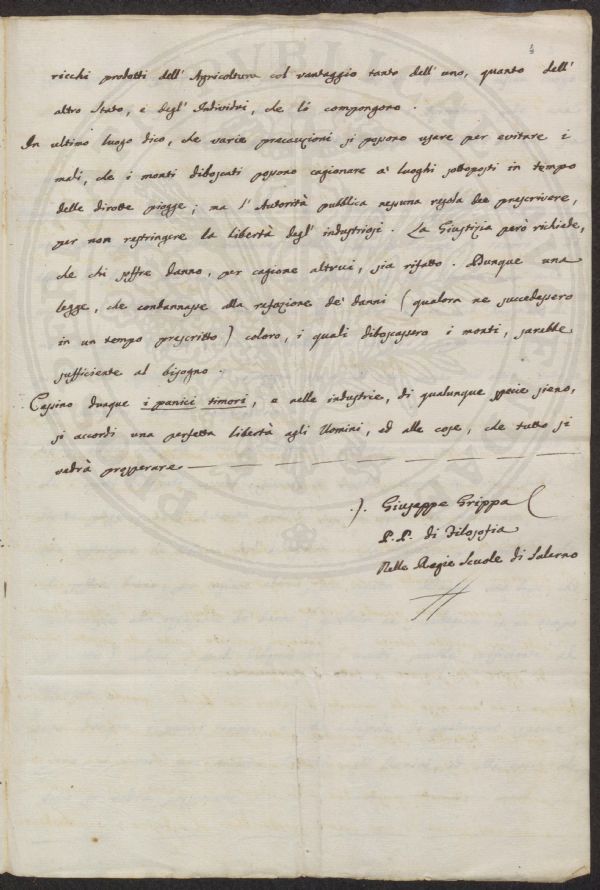 4
ricchi prodotti dell' Agricoltura col vantaggio tanto dell' uno, quanto dell'
altro Stato, e degl' Individui, che lo compongono.
In ultimo luogo dico, che varie precauzioni si possono usare per evitare i
mali, che i monti diboscati possono cagionare a' luoghi sottoposti in tempo
delle dirotte piogge; ma l' Autorità pubblica nessuna regola dee prescrivere,
per non restringere la libertà degl' industriosi. La Giustizia però richiede,
che chi soffre danno, per cagione altrui, sia rifatto. Dunque una
legge, che condannasse alla rifazione de' danni (qualora ne succedessero
in un tempo prescritto) coloro, i quali diboscassero i monti, sarebbe
sufficiente al bisogno.
Cessino dunque i panici timori, e nelle industrie, di qualunque specie sieno,
si accordi una perfetta libertà agli Uomini, ed alle cose, che tutto si
vedrà prosperare
Giuseppe Grippa
P. P. di Filosofia
Nelle Regie Scuole di Salerno